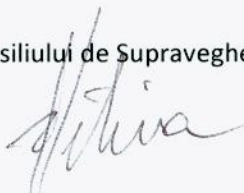 siliului de Supraveghe